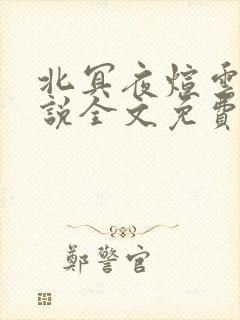 北冥夜煊雲
說全文免費
鄭警官